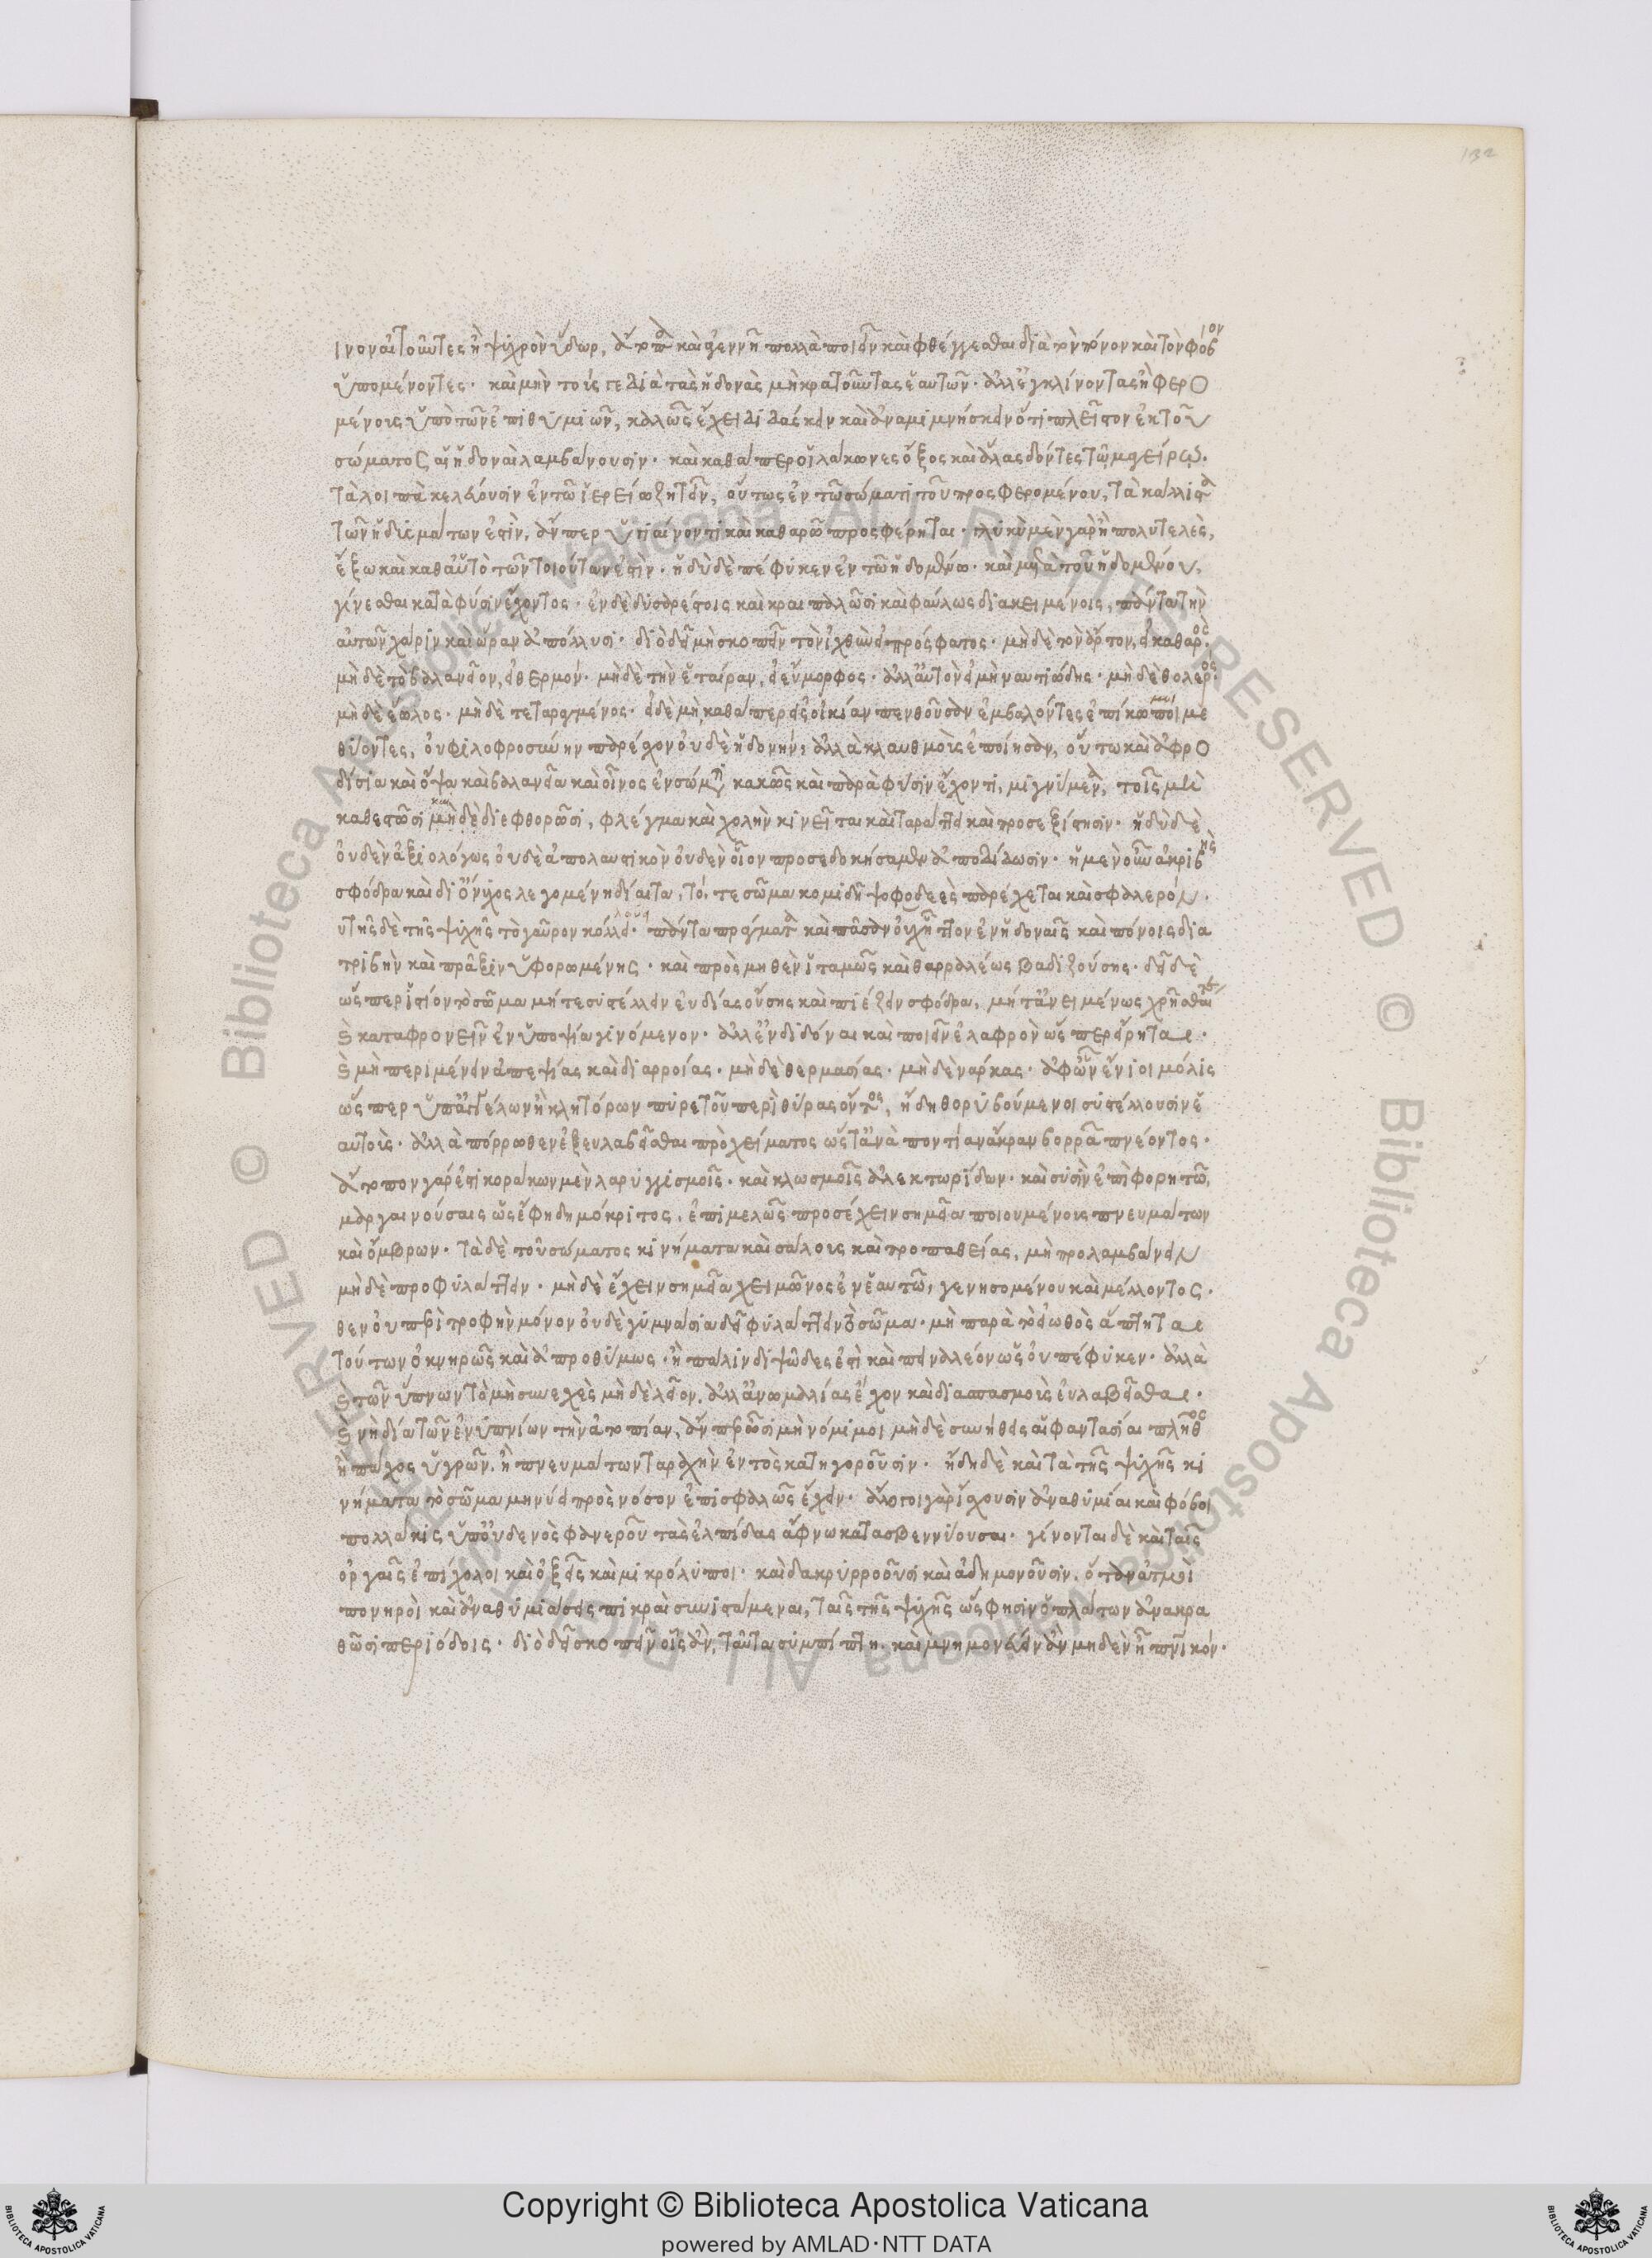 132
ινον αἰτοῦντες ἢ ψυχρὸν ὕδωρ, ἄτοπα καὶ ἀγεννῆ πολλὰ ποιεῖν καὶ φθέγγεσθαι διὰ τὸν πόνον καὶ τὸν φόβον
ὑπομένοντες· καὶ μὴν τοῖς γε διὰ τὰς ἡδονὰς μὴ κρατοῦντας ἑαυτῶν· ἀλλ' ἐγκλίνοντας ἢ φερο
μένοις ὑπὸ τῶν ἐπιθυμιῶν, καλῶς ἔχει διδάσκειν καὶ ἀναμιμνήσκειν ὅτι πλεῖστον ἐκ τοῦ
σώματος αἱ ἡδοναὶ λαμβάνουσιν· καὶ καθάπερ οἱ λάκωνες ὄξος καὶ ἅλας δόντες τῷ μαγείρῳ.
τὰ λοιπὰ κελεύουσιν ἐν τῷ ἱερείῳ ζητεῖν, οὕτως ἐν τῷ σώματι τοῦ προσφερομένου, τὰ κάλλιστα
τῶν ἡδυσμάτων ἐστὶν, ἄνπερ ὑγιαίνοντι καὶ καθαρῷ προσφέρηται· γλυκὺ μὲν γὰρ ἢ πολυτελὲς,
ἔξω καὶ καθ' αὑτὸ τῶν τοιούτων ἐστὶν· ἡδὺ δὲ πέφυκεν ἐν τῷ ἡδομένῳ· καὶ μετὰ τοῦ ἡδομένου,
γίνεσθαι κατὰ φύσιν ἔχοντος· ἐν δὲ δυσαρέστοις καὶ κραιπαλῶσι καὶ φαύλως διακειμένοις, πάντα τὴν
αὐτῶν χάριν καὶ ὥραν ἀπόλλυσι· διὸ δεῖ μὴ σκοπεῖν τὸν ἰχθὺν εἰ πρόσφατος· μὴ δὲ τὸν ἄρτον, εἰ καθαρός·
μὴ δὲ τὸ βαλανεῖον, εἰ θερμόν· μὴ δὲ τὴν ἑταίραν, εἰ εὔμορφος· ἀλλ' αὑτὸν εἰ μὴ ναυτιώδης· μὴ δὲ θολερός·
μὴ δὲ ἕωλος· μὴ δὲ τεταραγμένος· εἰ δὲ μὴ, καθάπερ εἰς οἰκίαν πενθοῦσαν ἐμβαλόντες ἐπίκωμοι με
θύοντες, οὐ φιλοφροσύνην παρέσχον οὐδὲ ἡδονήν· ἀλλὰ κλαυθμοὺς ἐποίησαν, οὕτω καὶ ἀφρο
δίσια καὶ ὄψα καὶ βαλανεῖα καὶ οἶνος ἐν σώματι κακῶς καὶ παρὰ φύσιν ἔχοντι, μιγνύμενα, τοῖς μὲν
καθεστῶσι καὶ μὴ δὲ διεφθορῶσι, φλέγμα καὶ χολὴν κινεῖ ται καὶ ταράττει καὶ προσεξίστησιν· ἡδὺ δὲ
οὐδὲν ἀξιολόγως οὐδὲ ἀπολαυστικὸν οὐδὲν οἷον προσεδοκήσαμεν ἀποδίδωσιν· ἡ μὲν οὖν ἀκριβὴς
σφόδρα καὶ δι' ὄνυχος λεγομένη δίαιτα, τό, τε σῶμα κομιδῇ ψοφοδεὲς παρέχεται καὶ σφαλερόν.
αὐτῆς δὲ τῆς ψυχῆς τὸ γαῦρον κολούει· πάντα πράγματα καὶ πᾶσαν οὐχ ἧττον ἐν ἡδοναῖς καὶ πόνοις δια
τριβὴν καὶ πρᾶξιν ὑφορωμένης· καὶ πρὸς μηθὲν ἰταμῶς καὶ θαρραλέως βαδιζούσης· δεῖ δὲ
ὥσπερ ἱστίον τὸ σῶμα μήτε συστέλλειν εὐδίας οὔσης καὶ πιέζειν σφόδρα, μήτ' ἀνειμένως χρῆσθαι
καταφρονεῖν ἐν ὑποψίᾳ γινόμενον· ἀλλ' ἐνδιδόναι καὶ ποιεῖν ἐλαφρὸν ὥσπερ εἴρηται.
μὴ περιμένειν ἀπεψίας καὶ διαρροίας· μὴ δὲ θερμασίας· μὴ δὲ νάρκας· ἀφ' ὧν ἔνιοι μόλις
ὥσπερ ὑπ' ἀγγέλων ἢ κλητόρων πυρετοῦ περὶ θύρας ὄντος, ἤδη θορυβούμενοι συστέλλουσιν ἑ
αυτοὺς· ἀλλὰ πόρρωθεν ἐξευλαβεῖσθαι πρὸ χείματος ὥστ' ἀνὰ ποντίαν ἄκραν βορρᾶ πνέοντος·
ἄτοπον γάρ ἐστι κοράκων μὲν λαρυγγισμοῖς· καὶ κλωσμοῖς ἀλεκτωρίδων· καὶ συσὶν ἐπὶ φορυτῷ,
μαργαινούσαις ὡς ἔφη δημόκριτος, ἐπιμελῶς προσέχειν σημεῖα ποιουμένοις πνευμάτων
καὶ ὄμβρων· τὰ δὲ τοῦ σώματος κινήματα καὶ σάλους καὶ προπαθείας, μὴ προλαμβάνειν
μὴ δὲ προφυλάττειν· μὴ δὲ ἔχειν σημεῖα χειμῶνος ἐν ἑαυτῷ, γενησομένου καὶ μέλλοντος·
θεν οὐ περὶ τροφὴν μόνον οὐδὲ γυμνάσια δεῖ φυλάττειν τὸ σῶμα· μὴ παρὰ τὸ εἰωθὸς ἅπτηται
τούτων ὀκνηρῶς καὶ ἀπροθύμως· ἢ πάλιν διψῶδές ἐστι καὶ πειναλέον ὡς οὐ πέφυκεν· ἀλλὰ
τῶν ὕπνων τὸ μὴ συνεχὲς μὴ δὲ λεῖον, ἀλλ' ἀνωμαλίας ἔχον καὶ διασπασμοὺς εὐλαβεῖσθαι.
νὴ δία τῶν ἐνυπνίων τὴν ἀτοπίαν, ἄν περ ὦσι μὴ νόμιμοι μὴ δὲ συνήθεις αἱ φαντασίαι πλῆθος
ἢ πάχος ὑγρῶν, ἢ πνευμάτων ταραχὴν ἐντὸς κατηγοροῦσιν· ἤδη δὲ καὶ τὰ τῆς ψυχῆς κι
νήματα τὸ σῶμα μηνύει πρὸς νόσον ἐπισφαλῶς ἔχειν· ἄλογοι γὰρ ἴσχουσιν ἀναθυμίαι καὶ φόβοι
πολλάκις ὑπ' οὐδενὸς φανεροῦ τὰς ἐλπίδας ἄφνω κατασβεννύουσαι· γίνονται δὲ καὶ ταῖς
ὀργαῖς ἐπίχολοι καὶ ὀξεῖς καὶ μικρόλυποι· καὶ δακρυρροοῦσι καὶ ἀδημονοῦσιν, ὅταν ἀτμοὶ
πονηροὶ καὶ ἀναθυμιάσεις πικραὶ συνιστάμεναι, ταῖς τῆς ψυχῆς ὥς φησιν ὁ πλάτων ἀνακρα
θῶσι περιόδοις· διὸ δεῖ σκοπεῖν οἷς ἂν, ταῦτα συμπίπτῃ. καὶ μνημονεύειν ἂν μηδὲν ἢ πνευματικόν·
© Biblioteca Apostolica Vaticana ALL RIGHTS RESERVED © Biblioteca Apostolica Vaticana ALL RIGHTS RESERVED
BIBLIOTECA APOSTOLICA VATICANA
Copyright © Biblioteca Apostolica Vaticana
powered by AMLAD·NTT DATA
BIBLIOTECA APOSTOLICA VATICANA